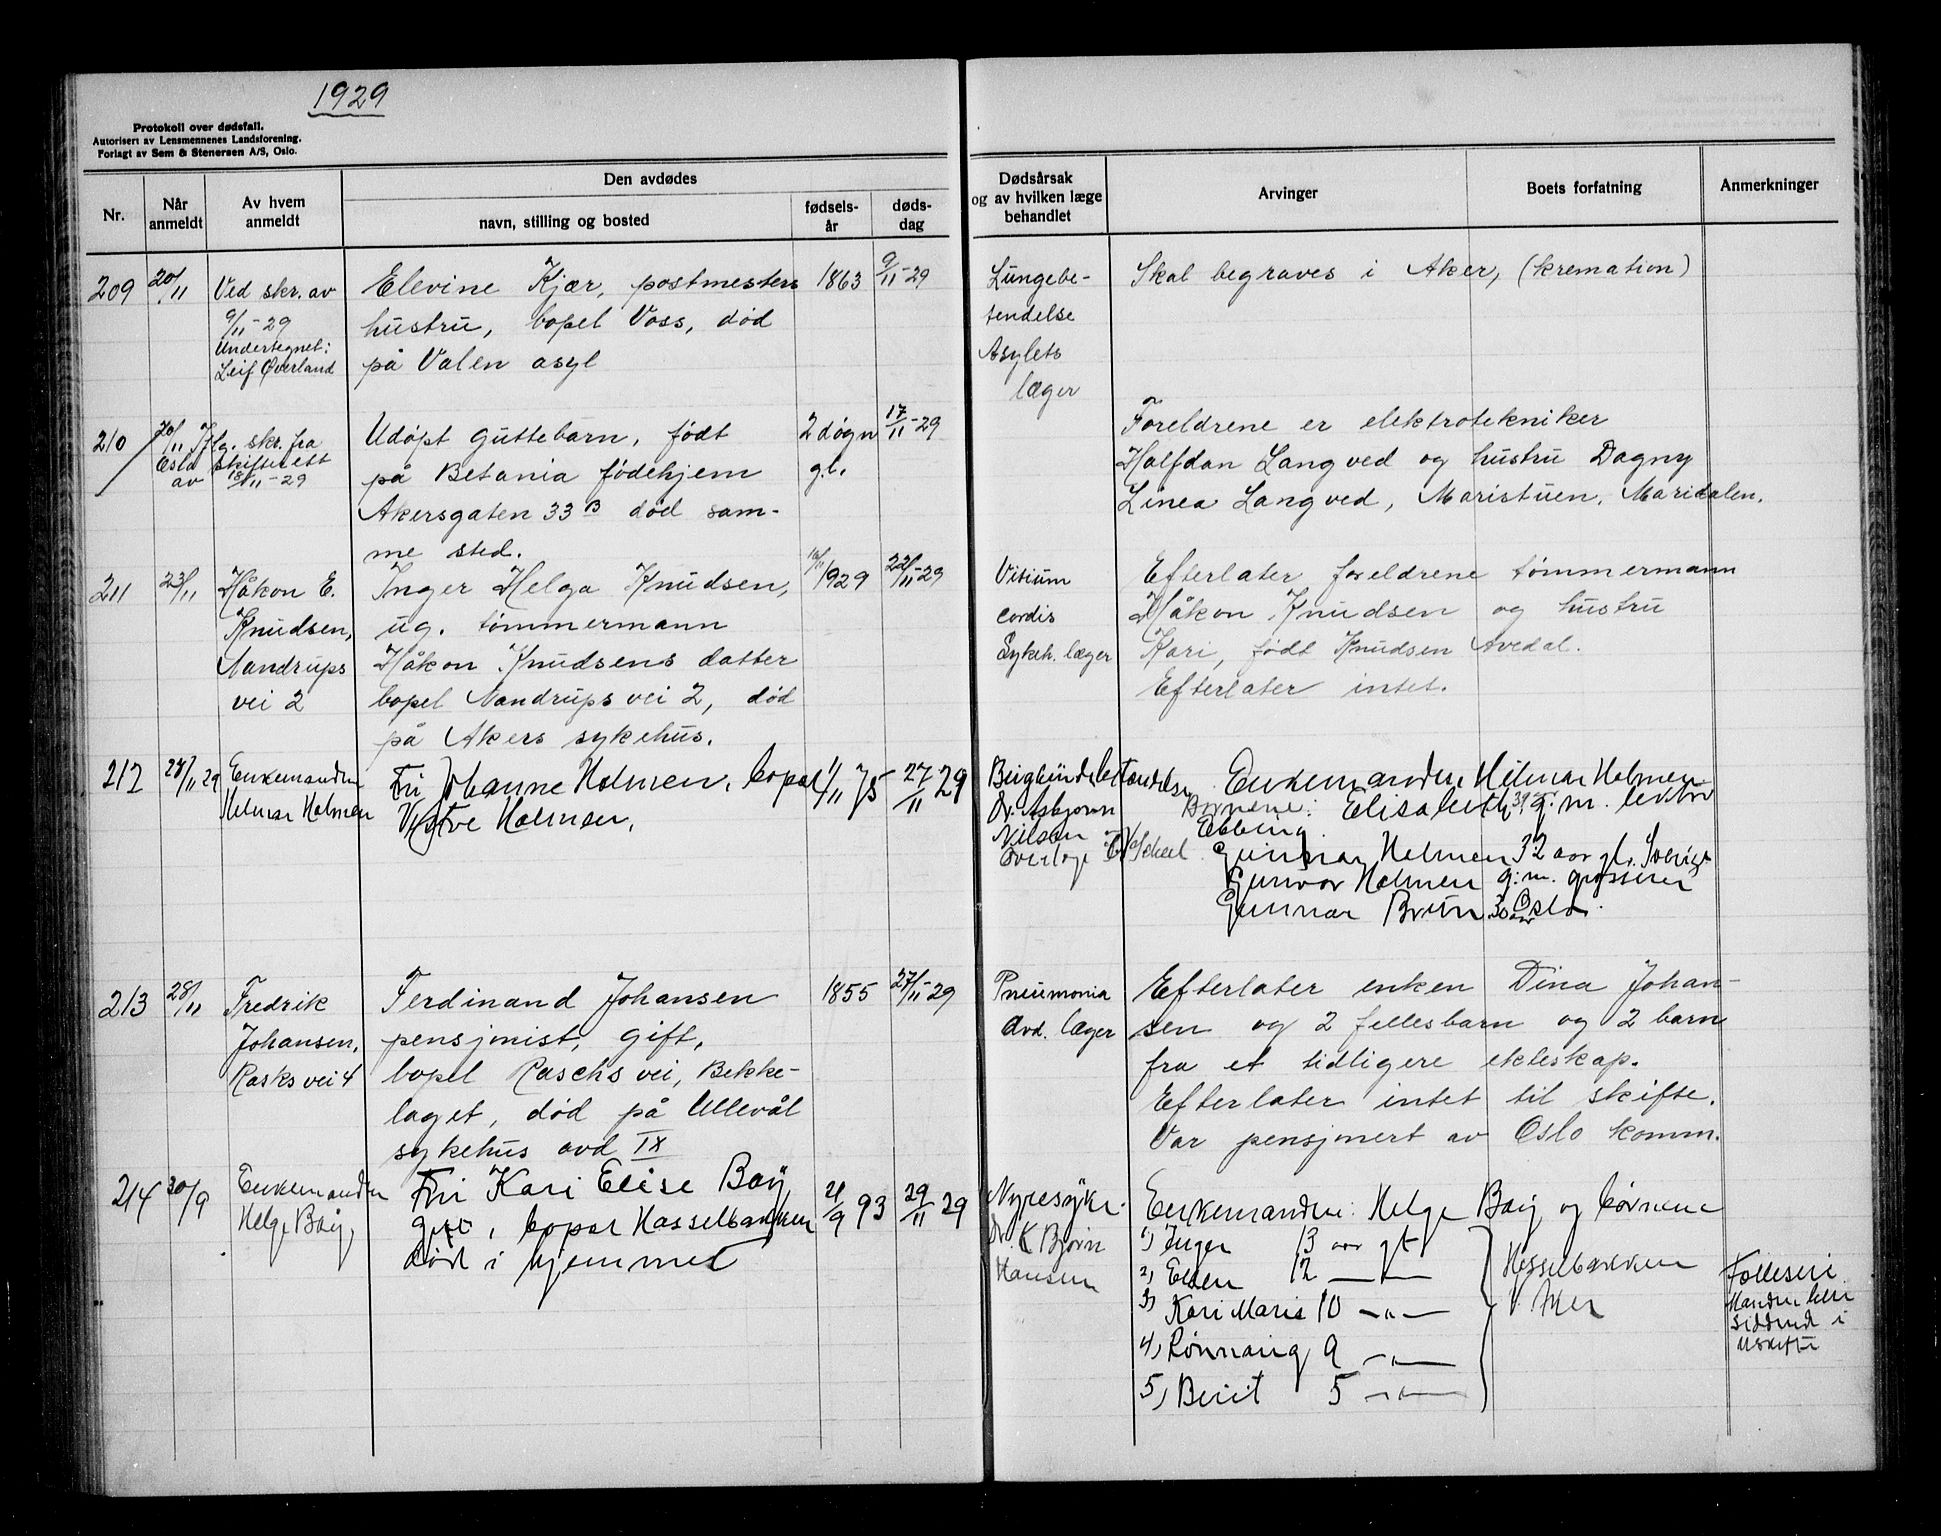 1929
Protokoll over dødsfall.
Autorisert av Lensmennenes Landsforening.
Forlagt av Sem & Stenersen A/S, Oslo.
Nr.
Når anmeldt
Av hvem anmeldt
Den avdødes
navn, stilling og bosted
fødsels-år
døds-dag
Dødsårsak og av hvilken læge behandlet
Arvinger
Boets forfatning
Anmerkninger
209
20/11
Ved skr. av
9/11-29
Undertegnet:
Leif Øverland
Elevine Kjær, postmesters
hustru, bopel Voss, død
på Valen asyl
1863
9/11-29
Lungebe-
tendelse
Asylets
læger
Skal begraves i Aker, (kremation)
210
20/11 Iflg. skr. fra
Oslo skifterett
av 18/11-29
Udøpt guttebarn, født
på Betania fødehjem
Akersgaten 33 B død sam-
me sted.
2 døgn
gl.
17/11-29
Foreldrene er elektrotekniker
Halfdan Langved og hustru Dagny
Linea Langved, Maristuen, Maridalen.
211
23/11
Håkon E.
Knudsen,
Nandrups
vei 2
Inger Helga Knudsen,
ug. tømmermann
Håkon Knudsens datter
bopel Nandrups vei 2, død
på Akers sykehus.
1929
22/11-29
Vitium
cordis
Sykeh. læger
Efterlater foreldrene tømmermann
Håkon Knudsen og hustru
Kari, født Knudsen Avedal.
Efterlater intet.
212
28/11 29
Enkemanden
Helmar Holmen
Fru Johanne Holmen, bopæl
Vestre Holmen.
1/11 75
27/11 29
Dr. Asbjørn
Nilsen
Enkemanden Helmar Holmen
Børnene: Elisabeth 39 g. m. lektor
Ebbing.
Gunnar Holmen 32 aar gl. Sverige
Gunvor Holmen g. m. grosserer
Gunnar Bruun 30 aar Oslo.
213
28/11
Fredrik
Johansen,
Rasks vei 4
Ferdinand Johansen
pensjonist, gift,
bopel Raschs vei, Bekke-
laget, død på Ullevål
sykehus avd IX
1855
27/11-29
Pneumonia
Avd. læger
Efterlater enken Dina Johan-
sen og 2 fellesbarn og 2 barn
fra et tidligere ekteskap.
Efterlater intet til skifte.
Var pensjonert av Oslo komm.
214
30/9
Enkemanden
Helge Bøij,
Fru Kari Elise Bøij,
gift, bopæl Hasselbakken
død i hjemmet
21/9 93
29/11 29
Nyresyke.
Dr. K Bjørn
Hansen
Enkemanden: Helge Bøij og børnene
1) Inger 13 aar gl
2) Ellen 12 —"—
3) Kari Marie 10 —"—
4) Rønnaug 9 —"—
5) Berit 5 —"—
Hasselbakken
V. Aker
Fælleseie
Manden
siddende i
uskifte